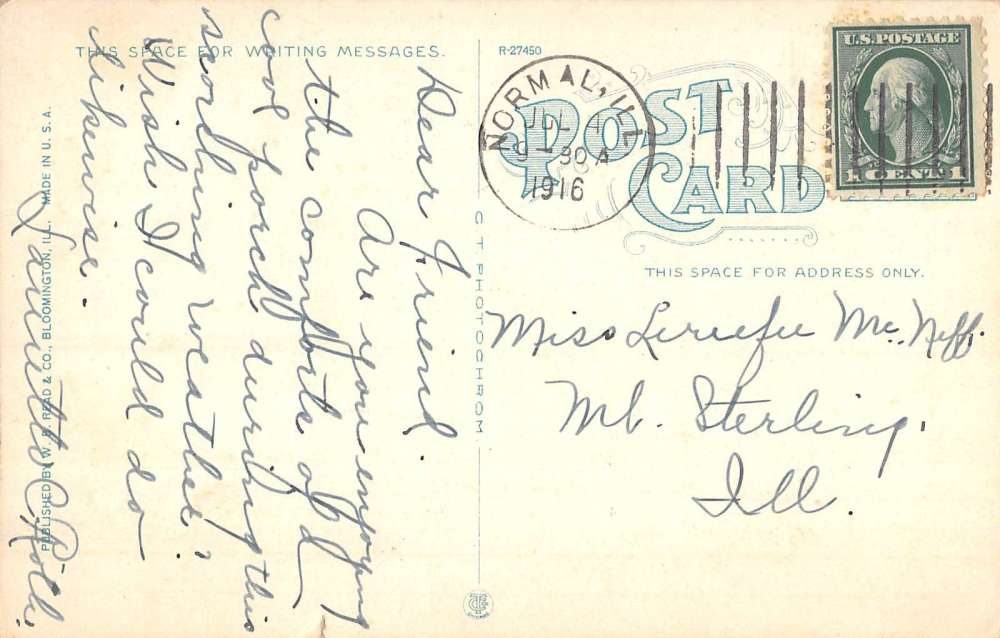 THIS SPACE FOR WRITING MESSAGES.
Dear Friend.
Are you enjoying
the comforts of a
cool porch during this
scorching weather?
Wish I could do
likewise.
PUBLISHED BY W. B. READ & CO., BLOOMINGTON, ILL. MADE IN U.S.A.
R-27450
POST
CARD
NORMAL, ILL
JUL
9-30A
1916
U.S. POSTAGE
1 CENT 1
C T PHOTOCHROM
THIS SPACE FOR ADDRESS ONLY.
Miss Mc. Neff.
Mt. Sterling.
Ill.